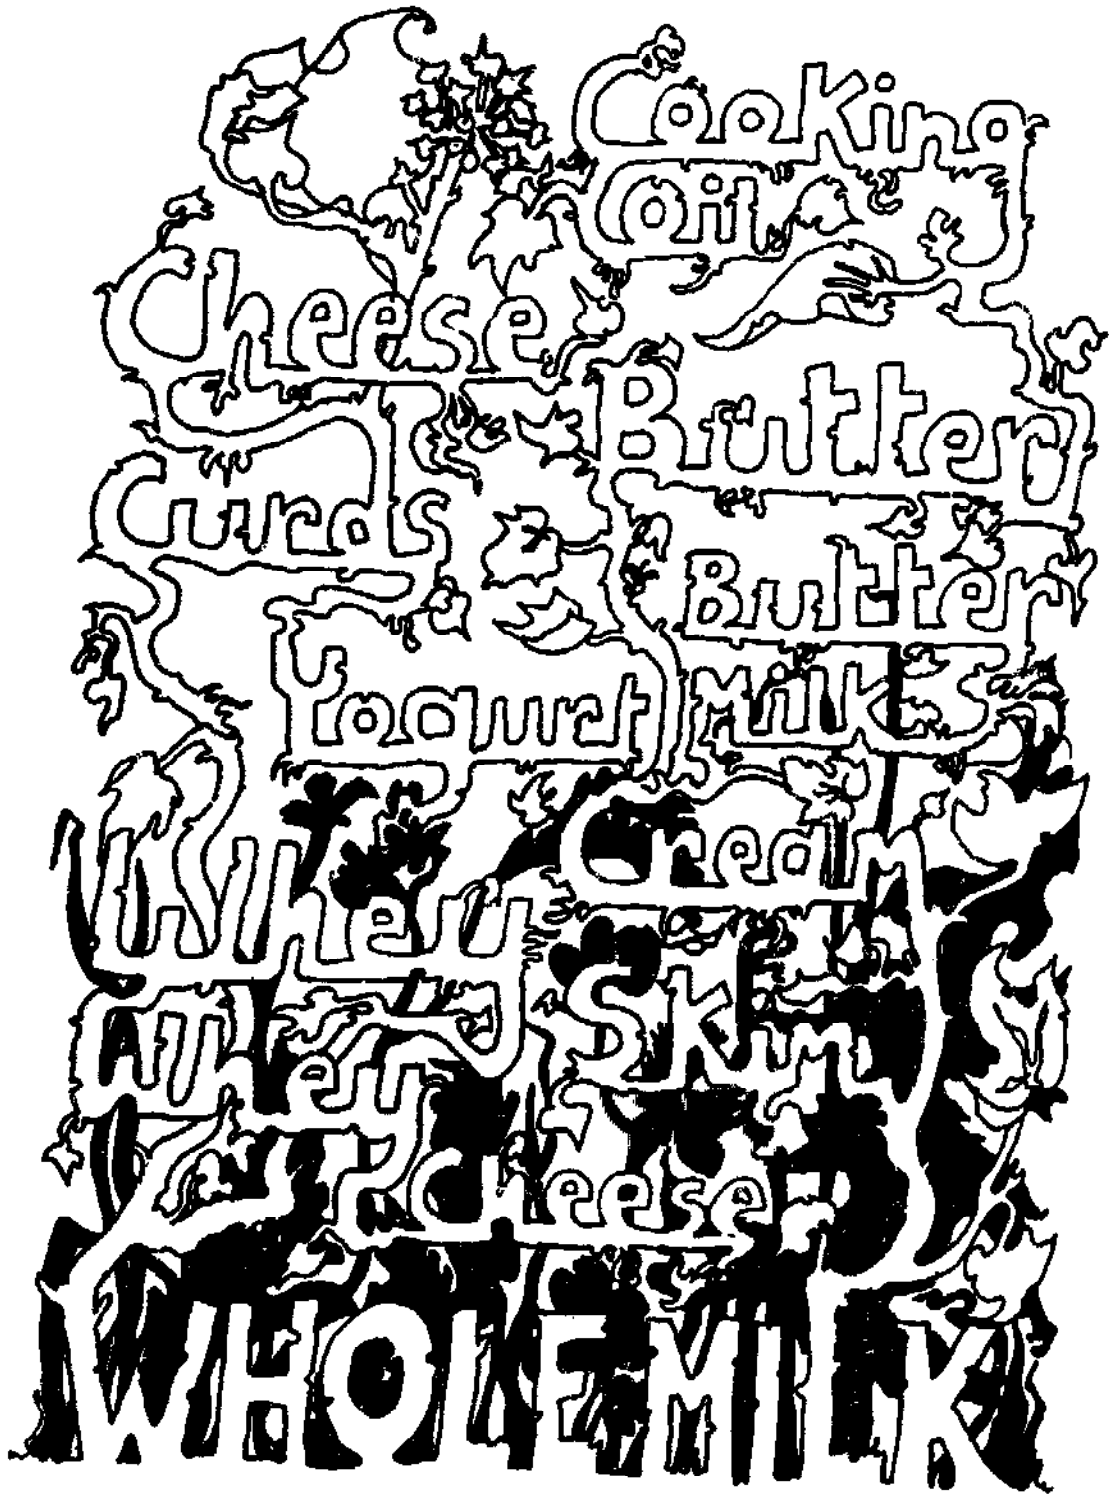 Cooking
Oil
Cheese
Butter
Curds
Butter
Milk
Yogurt
Cream
Whey
Skim
Cheese
WHOLE MILK